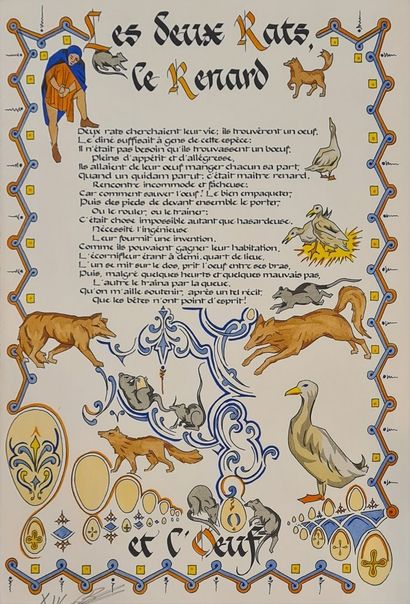 Les deux Rats,
le Renard
Deux rats cherchaient leur vie; ils trouvèrent un oeuf.
Le dîné suffisait à gens de cette espèce:
Il n'était pas besoin qu'ils trouvassent un boeuf.
Pleins d'appétit et d'allégresse,
Ils allaient de leur oeuf manger chacun sa part,
Quand un quidam parut: c'était maître renard.
Rencontre incommode et fâcheuse:
Car comment sauver l'oeuf! Le bien empaqueter;
Puis des pieds de devant ensemble le porter;
Ou le rouler, ou le traîner:
C'était chose impossible autant que hasardeuse.
Nécessité l'ingénieuse
Leur fournit une invention.
Comme ils pouvaient gagner leur habitation,
L'écornifleur étant à demi-quart de lieue,
L'un se mit sur le dos, prit l'oeuf entre ses bras,
Puis, malgré quelques heurts et quelques mauvais pas,
L'autre le traîna par la queue.
Qu'on m'aille soutenir, après un tel récit,
Que les bêtes n'ont point d'esprit!
et l'Oeuf